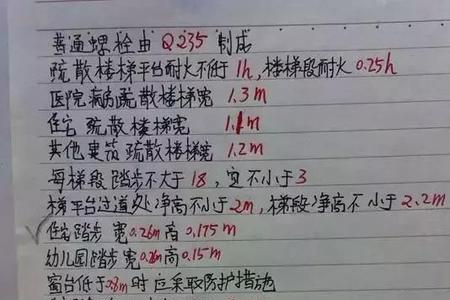 普通螺栓由 Q235 制成
疏散楼梯平台耐火不低于 1h, 楼梯段耐火 0.25h
医院病房疏散楼梯宽 1.3m
住宅 疏散楼梯宽 1.1m
其他建筑疏散楼梯宽 1.2m
每梯段踏步不大于 18, 宜不小于 3
梯平台过道处净高不小于 2m, 梯段净高不小于 2.2m
住宅踏步 宽 0.26m 高 0.175m
幼儿园踏步 宽 0.26m 高 0.15m
窗台低于 0.8m 时应采取防护措施